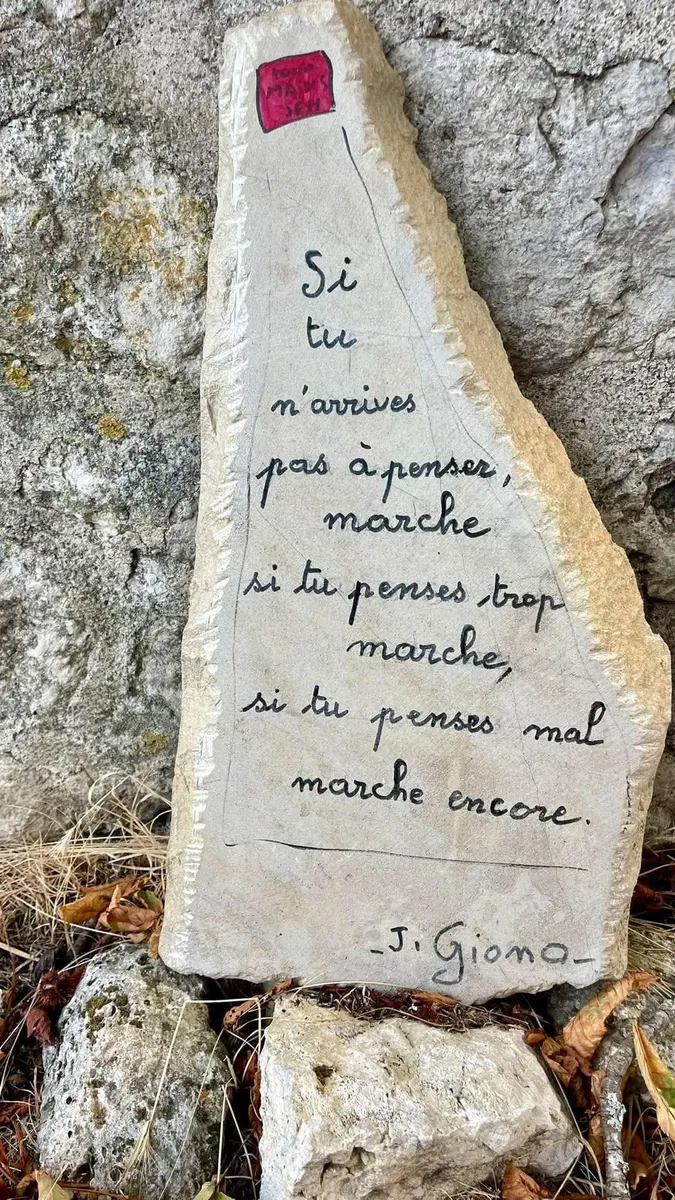 MAINS
Si
tu
n'arrives
pas à penser,
marche
si tu penses trop
marche,
si tu penses mal
marche encore.
- J. Giono -